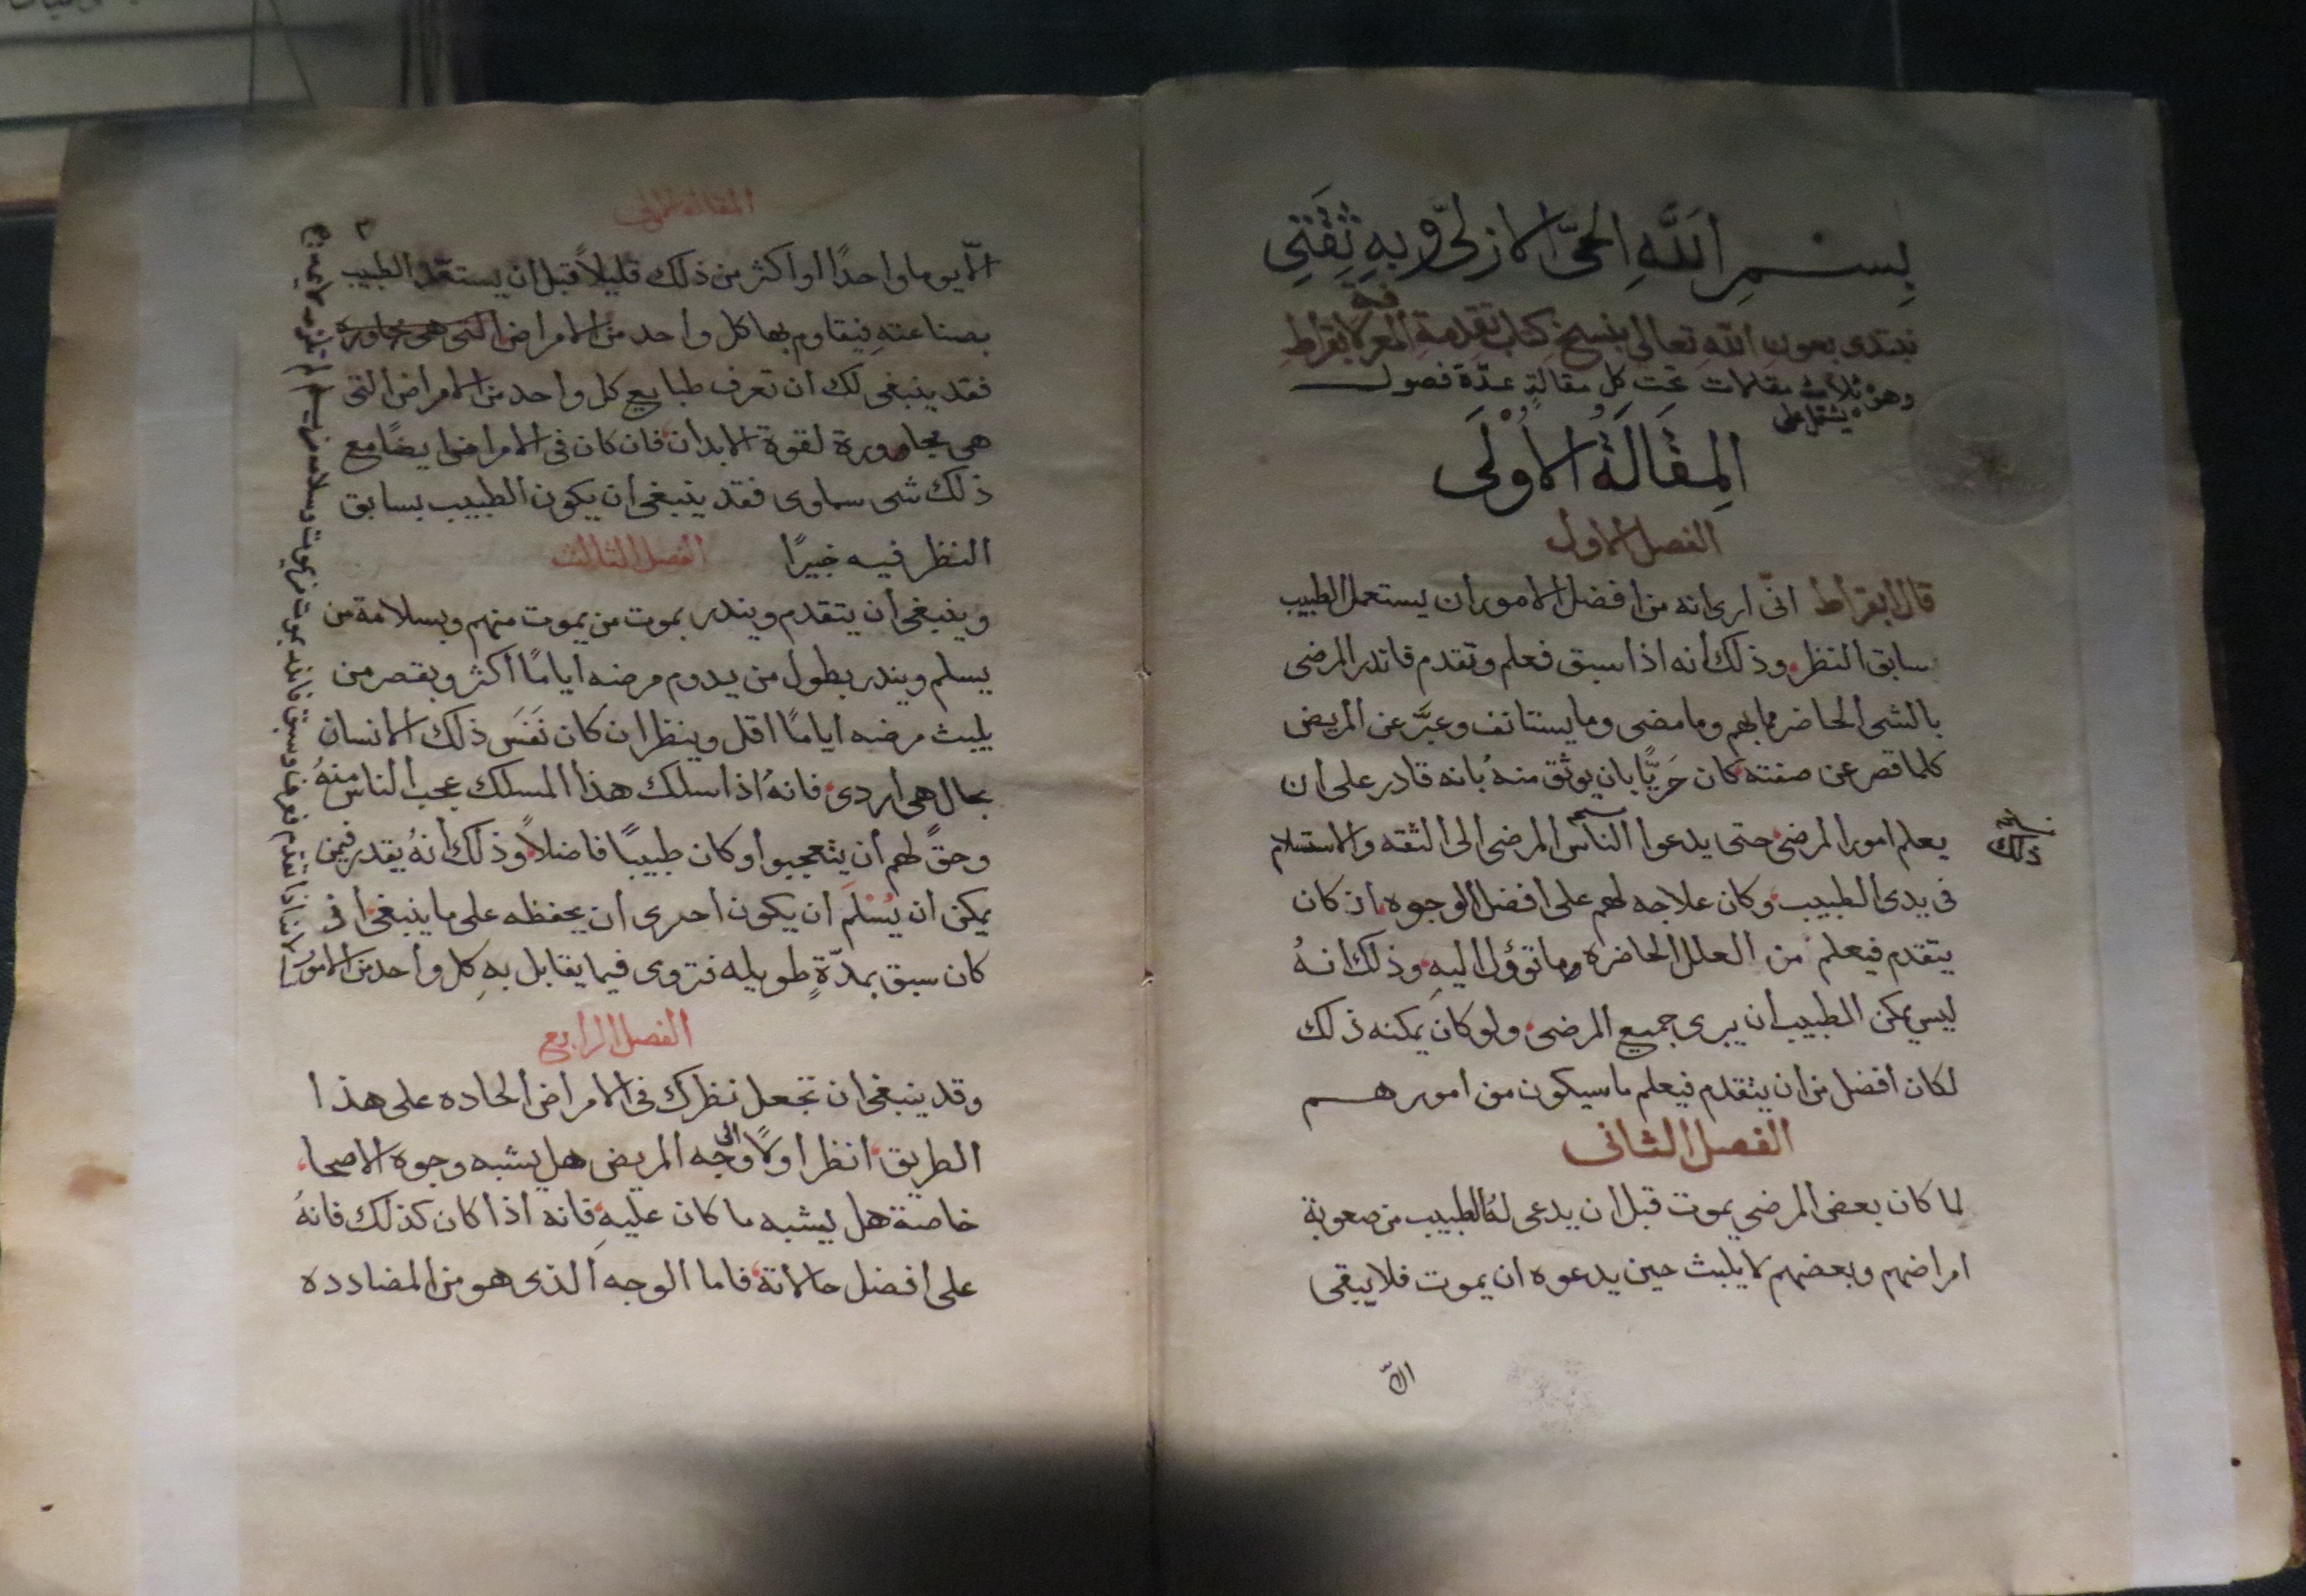 بِسْمِ اَللَّهِ الحَيَّ الازلىِّ وَبِهِ ثِقَتِى
نبتدى بعون الله تعالى بنسخ كتاب تقدمة المعرفة لابقراط
وهى ثلاث مقالات تحت كل مقالةٍ عدّة فصول
يشتمل على
المِقَالَةُ الاُوْلَى
الفصل الاول
قال ابقراط انّى ارى انه من افضل الامور ان يستعمل الطبيب
سابق النظر وذلك أنه اذا سبق فعلم وتقدم فاندر المرضى
بالشى الحاضر مما بهم وما مضى وما يستانف وعبَّر عن المريض
كلما قصر عن صفته كان حَريًّا بان يوثق منهُ بانه قادر على ان
يعلم امور المرضى حتى يدعوا الناس المرضى الى الثقه والاستسلام
ذلك
فى يدى الطبيب وكان علاجه لهم على افضل الوجوه اذ كان
يتقدم فيعلم من العلل الحاضره وما تؤول اليهِ وذلك انهُ
ليس يمكن الطبيب ان يبرى جميع المرضى ولو كان يمكنه ذلك
لكان افضل من ان يتقدم فيعلم ما سيكون من امورهم
الفصل الثانى
لما كان بعض المرضى يموت قبل ان يدعى لهُ الطبيب من صعوبة
امراضهم وبعضهم لا يلبث حين يدعوه ان يموت فلا يبقى
الّا
المقالة الاولى
٢
الّا يوما واحدًا او اكثر من ذلك قليلاً قبل ان يستعمل الطبيب
بصناعتهِ فيقاوم بها كل واحد من الامراض التى هى مجاوره
فقد ينبغى لك ان تعرف طبايع كل واحد من الامراض التى
هى مجاوورة لقوة الابدان فان كان فى الامراض ايضًا مع
ذلك شى سماوى فقد ينبغى ان يكون الطبيب بسابق
النظر فيه خبيرًا الفصل الثالث
وينبغى ان يتقدم ويندر بموت من يموت منهم وبسلامة من
يسلم ويندر بطول من يدوم مرضه أيامًا أكثر وبقصر من
يلبث مرضه اياماً اقل وينظر ان كان نَفَسَ ذلك الانسان
بحال هى اردى فانهُ اذا سلك هذا المسلك عجب الناس منهُ
وحقّ لهم أن يتعجبوا وكان طبيبًا فاضلاً وذلك أنهُ يقدر فيمن
يمكن ان يُسْلَمَ ان يكون احرى ان يحفظه على ما ينبغى اذ
كان سبق بمدّةٍ طويله فتروى فيما يقابل بهِ كل واحد من الامور
الفصل الرابع
وقد ينبغى ان تجعل نظرك فى الامراض الحاده على هذا
الطريق انظر اولاً الى وجه المريض هل يشبه وجوه الاصحا
خاصة هل يشبه ما كان عليهِ فانه اذا كان كذلك فانهُ
على افضل حالاتة فاما الوجه الذى هو من المضادده